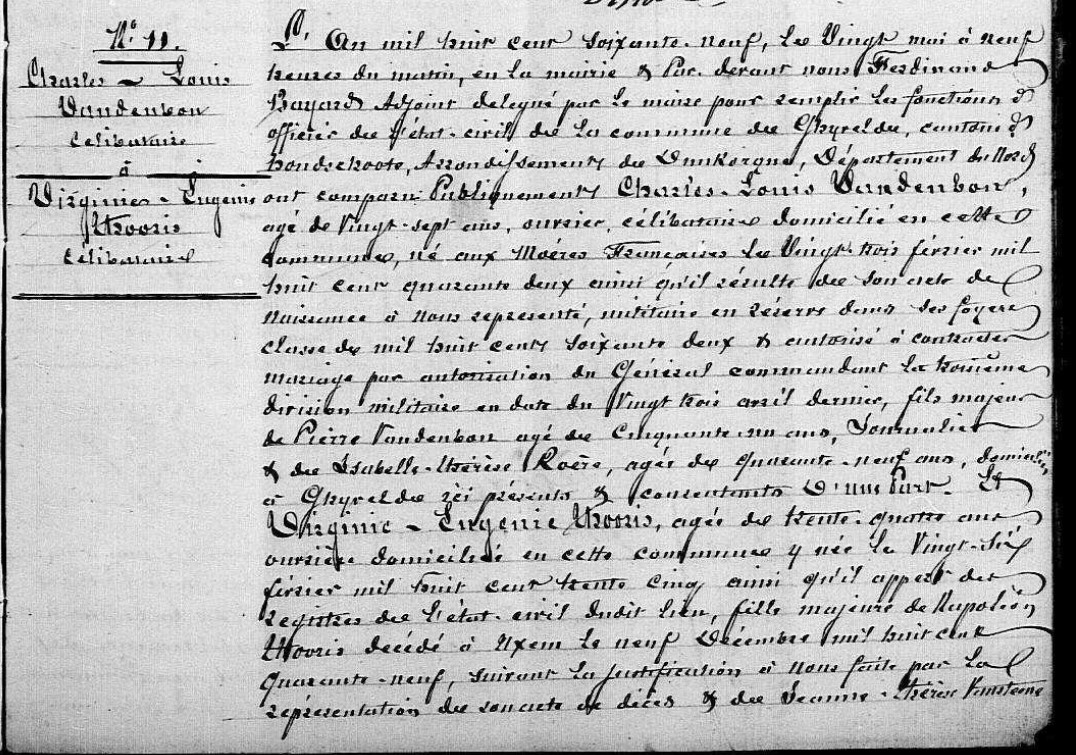 N° 11.
Charles - Louis
Vandenbon
célibataire
à
Virginie - Eugénie
Thooris
célibataire
L'An mil huit cent soixante-neuf, le Vingt mai à neuf
heures du matin, en la mairie & Par devant nous Ferdinand
Bayard Adjoint délégué par le maire pour remplir les fonctions d'
officier de l'état-civil de la commune de Ghyvelde, canton d'
hondschoote, Arrondissement de Dunkerque, Département du Nord
ont comparu Publiquement Charles-Louis Vandenbon,
agé de Vingt-sept ans, ouvrier, célibataire domicilié en cette
commune, né aux Moëres Françaises le Vingt-trois février mil
huit cent quarante deux ainsi qu'il résulte de son acte de
naissance à nous représenté, militaire en réserve dans ses foyers
classe de mil huit cent soixante deux & autorisé à contracter
mariage par autorisation du Général commandant la troisième
division militaire en date du Vingt trois avril dernier, fils majeur
de Pierre Vandenbon agé de Cinquante-un ans, Journalier
& de Isabelle-thérèse Roère, agée de quarante-neuf ans, domiciliés
à Ghyvelde ici présents & consentants D'une Part. Et
Virginie - Eugénie Thooris, agée de trente-quatre ans
ouvrière domiciliée en cette commune y née le Vingt-Six
février mil huit cent trente cinq ainsi qu'il appert des
registres de l'état-civil dudit lieu, fille majeure de Napoléon
Thooris décédé à Uxem le neuf Décembre mil huit cent
quarante-neuf, suivant la justification à nous faite par la
représentation de son acte de décès & de Jeanne-thérèse